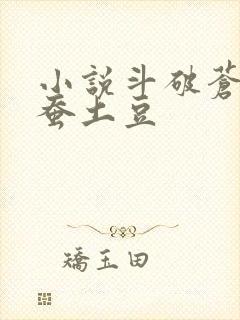 小說斗破蒼
蚕土豆
矯玉田